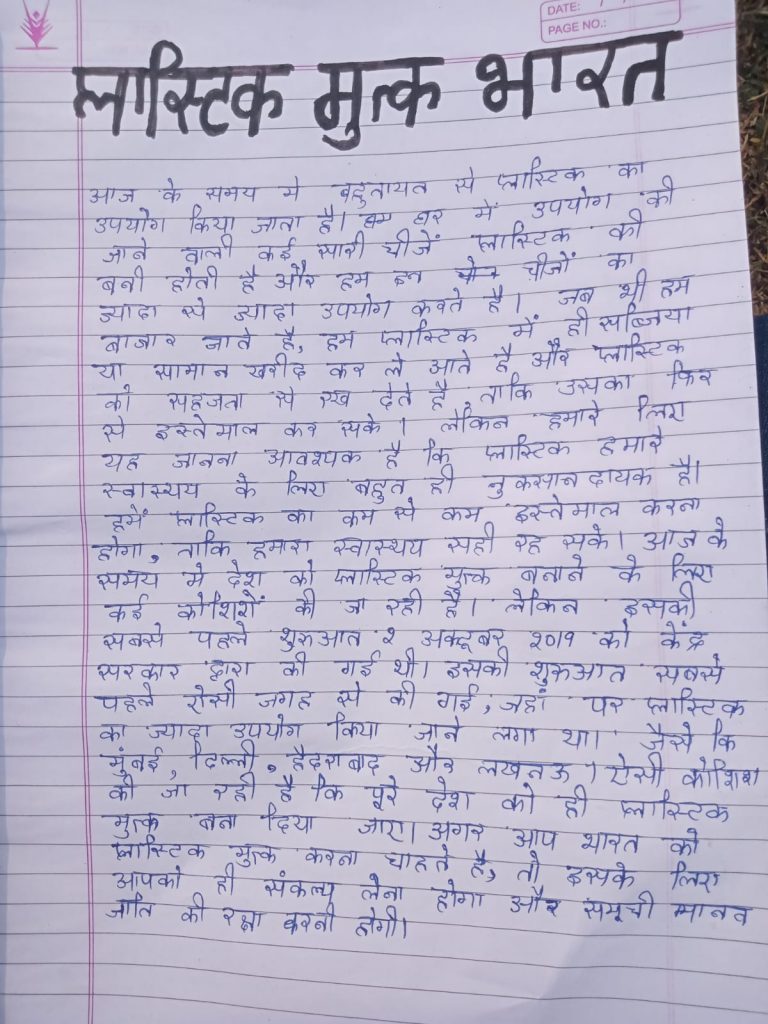 DATE: / /
PAGE NO.:
प्लास्टिक मुत्क भारत
आज के समय मे बहुतायत से प्लास्टिक का
उपयोग किया जाता है। हम घर में उपयोग की
जाने वाली कई सारी चीजें प्लास्टिक की
बनी होती है और हम इन चीजों का
ज्यादा से ज्यादा उपयोग करते है। जब भी हम
बाजार जाते है, हम प्लास्टिक में ही सब्जिया
या सामान खरीद कर ले आते है और प्लास्टिक
को सहजता से रख देते है, ताकि उसका फिर
से इस्तेमाल कर सके। लेकिन हमारे लिए
यह जानना आवश्यक है कि प्लास्टिक हमारे
स्वास्थय के लिए बहुत ही नुकसानदायक है।
हमें प्लास्टिक का कम से कम इस्तेमाल करना
होगा, ताकि हमारा स्वास्थय सही रह सके। आज के
समय मे देश को प्लास्टिक मुत्क बनाने के लिए
कई कोशिशें की जा रही है। लेकिन इसकी
सबसे पहले शुरुआत २ अक्टूबर २०१९ को केंद्र
सरकार द्वारा की गई थी। इसकी शुरुआत सबसे
पहले ऐसी जगह से की गई, जहाँ पर प्लास्टिक
का ज्यादा उपयोग किया जाने लगा था। जैसे कि
मुंबई, दिल्ली, हैदराबाद और लखनऊ। ऐसी कोशिश
की जा रही है कि पूरे देश को ही प्लास्टिक
मुत्क बना दिया जाए। अगर आप भारत को
प्लास्टिक मुत्क करना चाहते है, तो इसके लिए
आपको ही संकल्प लेना होगा और समूची मानव
जाति की रक्षा करनी होगी।